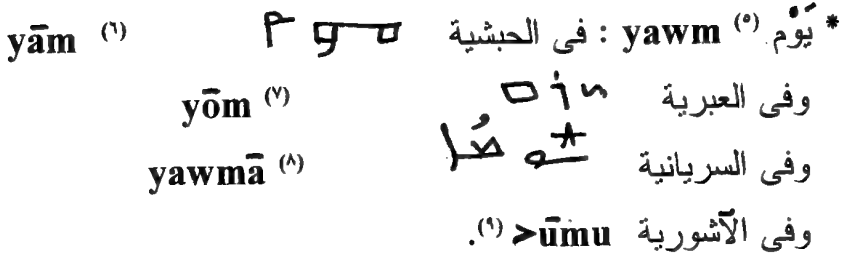 * يَوْم (٥) yawm : فى الحبشية (٦) yām
وفى العبرية יוֹם yōm (٧)
وفى السريانية yawmā (٨)
وفى الآشورية >ūmu (٩).